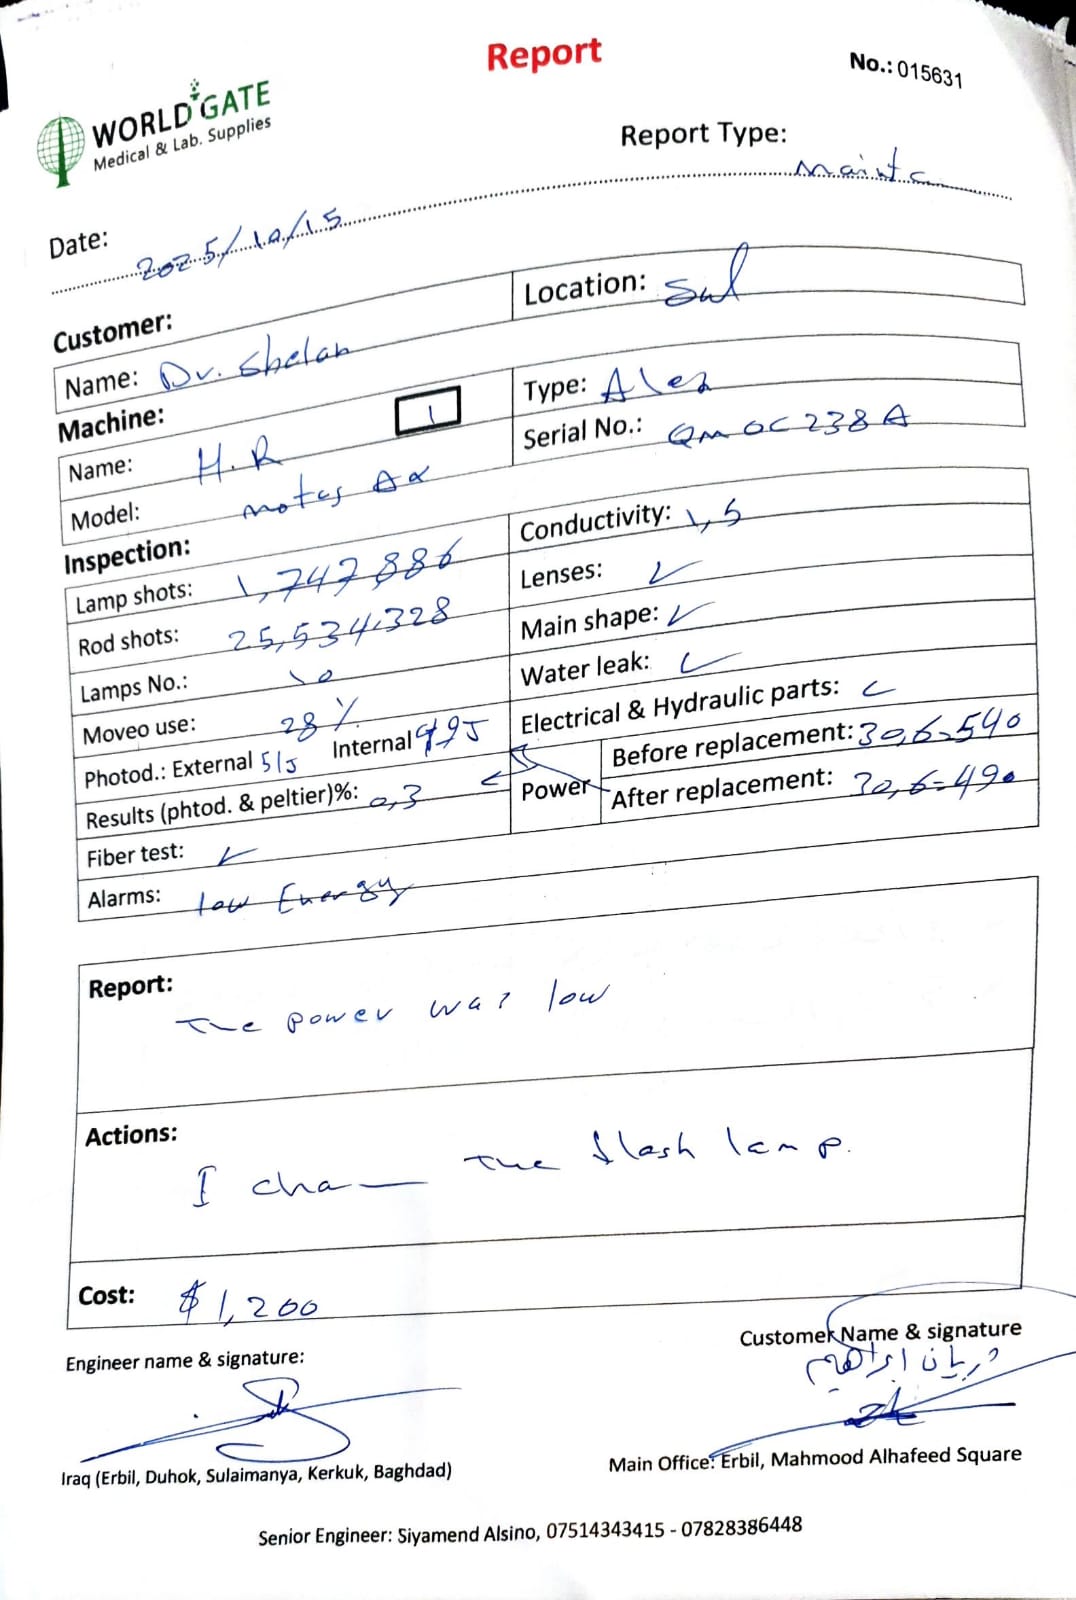 Report
No.: 015631
WORLD GATE
Medical & Lab. Supplies
Report Type: Maint
Date: 2025/10/15
Customer:
Name: Dr. Shelan
Location: Sul
Machine: 1
Name: H.R
Type: Alex
Model: motus Ax
Serial No.: QM0C238A
Inspection:
Lamp shots: 1,747,886
Conductivity: 1,5
Rod shots: 25,534,328
Lenses: ✓
Lamps No.: 10
Main shape: ✓
Moveo use: 28%
Water leak: ✓
Photod.: External 515 Internal 495
Electrical & Hydraulic parts: ✓
Results (phtod. & peltier)%: 0,3
Power
Before replacement: 30,6=540
After replacement: 30,6=490
Fiber test: ✓
Alarms: low Energy
Report:
The power was low
Actions:
I cha the flash lamp.
Cost: $1,200
Engineer name & signature:
Customer Name & signature
ابراهيم
Iraq (Erbil, Duhok, Sulaimanya, Kerkuk, Baghdad)
Main Office: Erbil, Mahmood Alhafeed Square
Senior Engineer: Siyamend Alsino, 07514343415 - 07828386448